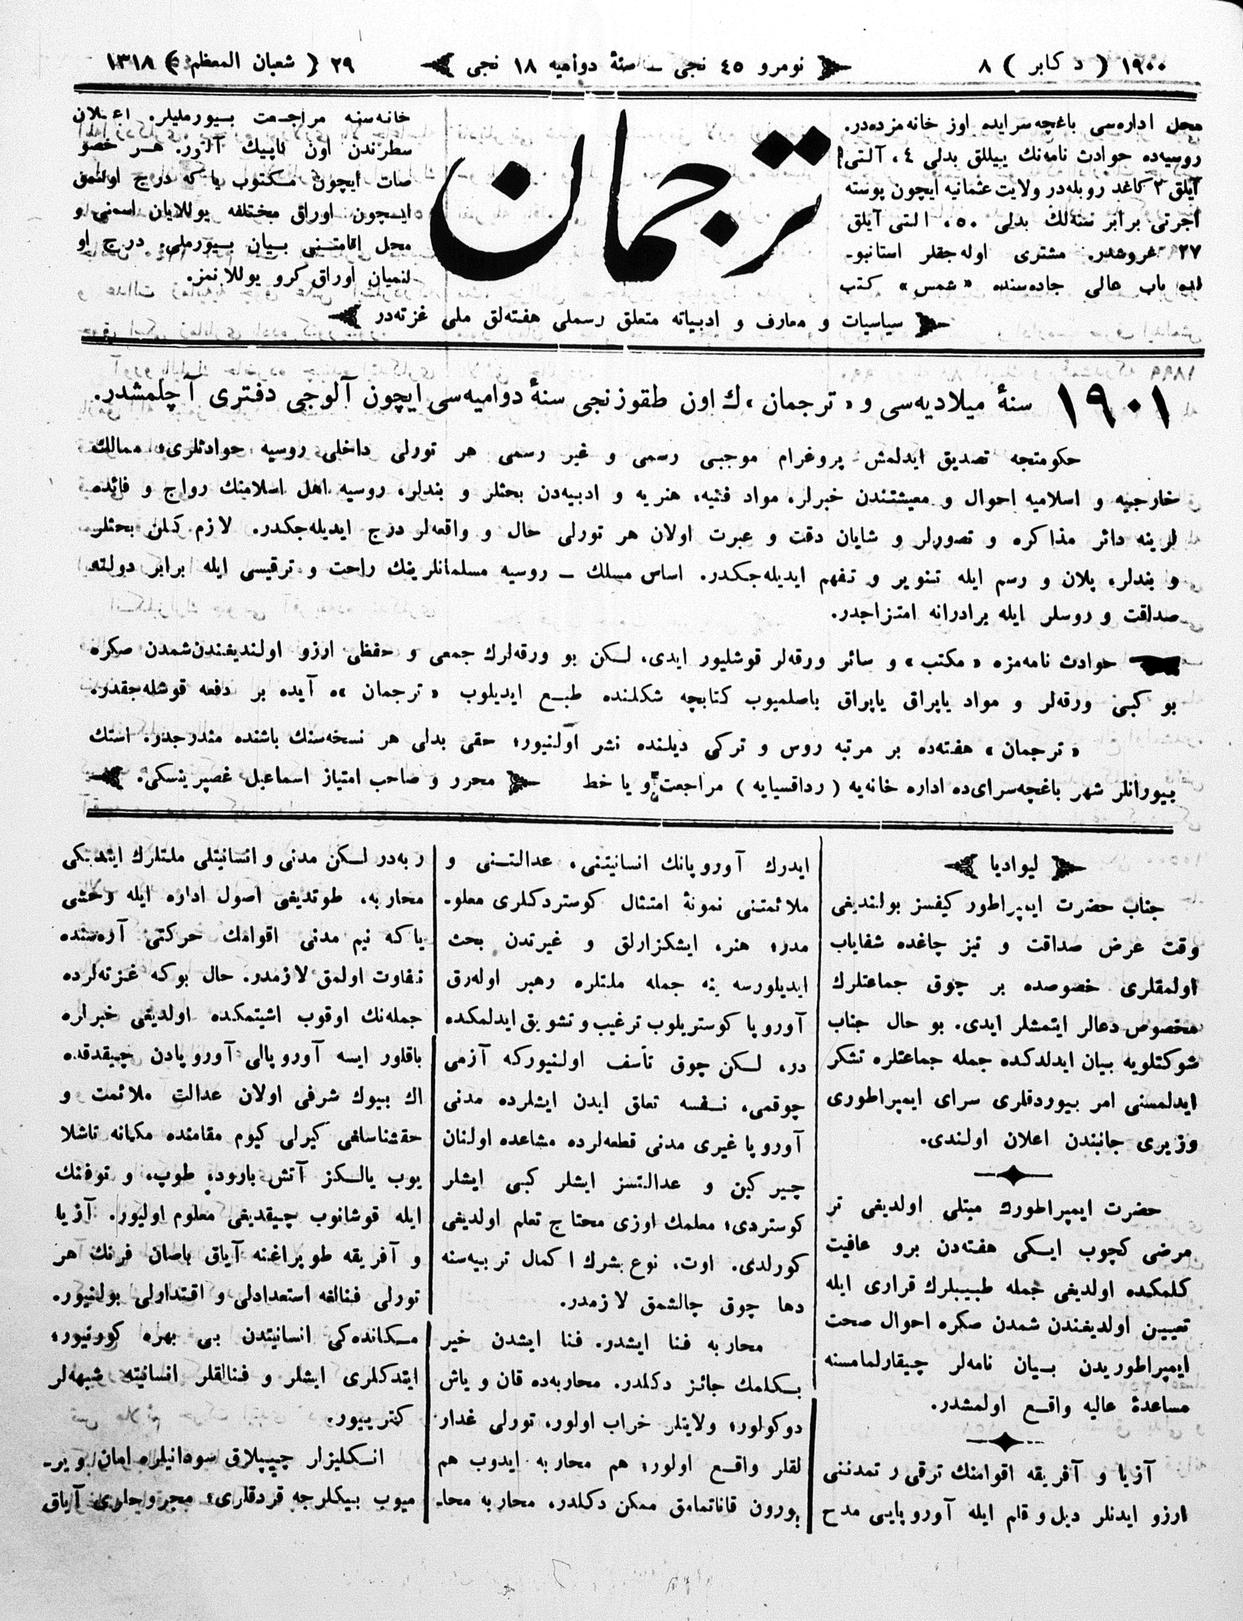 ١٩٠٠ ( دكابر ) ٨
نومرو ٤٥ نجى — سنهٔ دواميه ١٨ نجى
٢٩ ( شعبان المعظم ) ١٣١٨
محل اداره‌سى باغچه‌سرايده اوز خانه‌مزده‌در.
روسيه‌ده حوادث نامه‌نك ييللق بدلى ٤، آلتى
آيلق ٢ كاغد روبله‌در ولايت عثمانيه ايچون پوسته
اجرتى برابر سنه‌لك بدلى ٥٠، التى آيلق
٢٧ غروشدر. مشترى اوله‌جقلر استانبو-
لده باب عالى جاده‌سنده «شمس» كتب
ترجمان
خانه‌سنه مراجعت بيورمليلر. اعلان
سطرندن اون كاپيك آلور. هر خصو
صات ايچون مكتوب ياكه درج اولنمق
ايچون اوراق مختلفه يوللايان اسمنى و
محل اقامتنى بيان بيورملى. درج او
لنميان اوراق كرو يوللانمز.
سياسيات و معارف و ادبياته متعلق رسملى هفته‌لق ملى غزته‌در
١٩٠١ سنهٔ ميلاديه‌سى و «ترجمان»ك اون طقوزنجى سنهٔ دواميه‌سى ايچون آلوجى دفترى آچلمشدر.
حكومتجه تصديق ايدلمش پروغرام موجبى رسمى و غير رسمى هر تورلى داخلى روسيه حوادثلرى، ممالك
خارجيه و اسلاميه احوال و معيشتندن خبرلر، مواد فنيه، هنريه و ادبيه‌دن بحثلر و بندلر، روسيه اهل اسلامنك رواج و فائده
لرينه دائر مذاكره و تصورلر و شايان دقت و عبرت اولان هر تورلى حال و واقعه‌لر درج ايديله‌جكدر. لازم كلن بحثلر
و بندلر، پلان و رسم ايله تنوير و تفهم ايديله‌جكدر. اساس مسلك — روسيه مسلمانلرينك راحت و ترقيسى ايله برابر دولته
صداقت و روسلر ايله برادرانه امتزاجدر.
حوادث نامه‌مزه «مكتب» و سائر ورقه‌لر قوشليور ايدى. لكن بو ورقه‌لرك جمعى و حفظى ارزو اولنديغندن شمدن صكره
بو كبى ورقه‌لر و مواد ياپراق ياپراق باصلميوب كتابچه شكلنده طبع ايديلوب «ترجمان»ه آيده بر دفعه قوشله‌جقدر.
«ترجمان» هفته‌ده بر مرتبه روس و تركى ديلنده نشر اولنيور؛ حقى بدلى هر نسخه‌سنك باشنده مندرجدر. استك
بيورانلر شهر باغچه‌سراى‌ده اداره خانه‌يه ( رداقسيايه ) مراجعت و يا خط محرر و صاحب امتياز اسماعيل غصپرينسكى.
ليواديا
جناب حضرت ايمپراطور كيفسز بولنديغى
وقت عرض صداقت و تيز چاغده شفاياب
اولمقلرى خصوصده بر چوق جماعتلرك
مخصوص دعالر ايتمشلر ايدى. بو حال جناب
شوكتلويه بيان ايدلدكده جمله جماعتلره تشكر
ايدلمسنى امر بيوردقلرى سراى ايمپراطورى
وزيرى جانبندن اعلان اولندى.
حضرت ايمپراطورك مبتلى اولديغى تر
مرضى كچوب ايكى هفته‌دن برو عافيت
كلمكده اولديغى جمله طبيبلرك قرارى ايله
تعيين اولديغندن شمدن صكره احوال صحت
ايمپراطوريدن بيان نامه‌لر چيقارلمامسنه
مساعدهٔ عاليه واقع اولمشدر.
آزيا و آفريقه اقوامنك ترقى و تمدننى
ارزو ايدنلر ديل و قلم ايله آوروپايى مدح
ايدرك آوروپانك انسانيتنى، عدالتنى و
ملائمتنى نمونهٔ امتثال كوستردكلرى معلو-
مدر؛ هنر، ايشكزارلق و غيرتدن بحث
ايديلورسه ينه جمله ملتلره رهبر اوله‌رق
آوروپا كوستريلوب ترغيب و تشويق ايدلمكده
در، لكن چوق تأسف اولنيوركه آزمى
چوقمى، نفسه تعلق ايدن ايشلرده مدنى
آوروپا غيرى مدنى قطعه‌لرده مشاهده اولنان
چيركين و عدالتسز ايشلر كبى ايشلر
كوستردى؛ معلمك اوزى محتاج تعلم اولديغى
كورلدى. اوت، نوع بشرك اكمال تربيه‌سنه
دها چوق چالشمق لازمدر.
محاربه فنا ايشدر. فنا ايشدن خير
بكلمك جائز دكلدر. محاربه‌ده قان و ياش
دوكولور؛ ولايتلر خراب اولور، تورلى غدار
لقلر واقع اولور؛ هم محاربه ايدوب هم
بورون قاناتمامق ممكن دكلدر، محاربه محا-
ربه‌در لكن مدنى و انسانيتلى ملتلرك ايتديكى
محاربه، طوتديغى اصول اداره ايله وحشى
ياكه نيم مدنى اقوامك حركتى آره‌سنده
تفاوت اولمق لازمدر. حال بوكه غزته‌لرده
جمله‌نك اوقوب اشيتمكده اولديغى خبرلره
باقلور ايسه آوروپالى آوروپادن چيقدقده
اك بيوك شرفى اولان عدالت ملائمت و
حقشناسلغى كيرلى كيوم مقامنده مكانه تاشلا
يوب يالكز آتش بارود، طوپ، و توفنك
ايله قوشانوب چيقديغى معلوم اوليور. آزيا
و آفريقه طوپراغنه آياق باصان فرنك هر
تورلى فنالغه استعدادلى و اقتدارلى بولنيور.
مكانده‌كى انسانيتدن بى بهره كورنيور؛
ايتدكلرى ايشلر و فنالقلر انسانيته شبهه‌لر
كتريبور.
انكليزلر چيپلاق سودانيلره امان وير-
ميوب بيكلرجه قردقلرى؛ مجروحلرى آياق